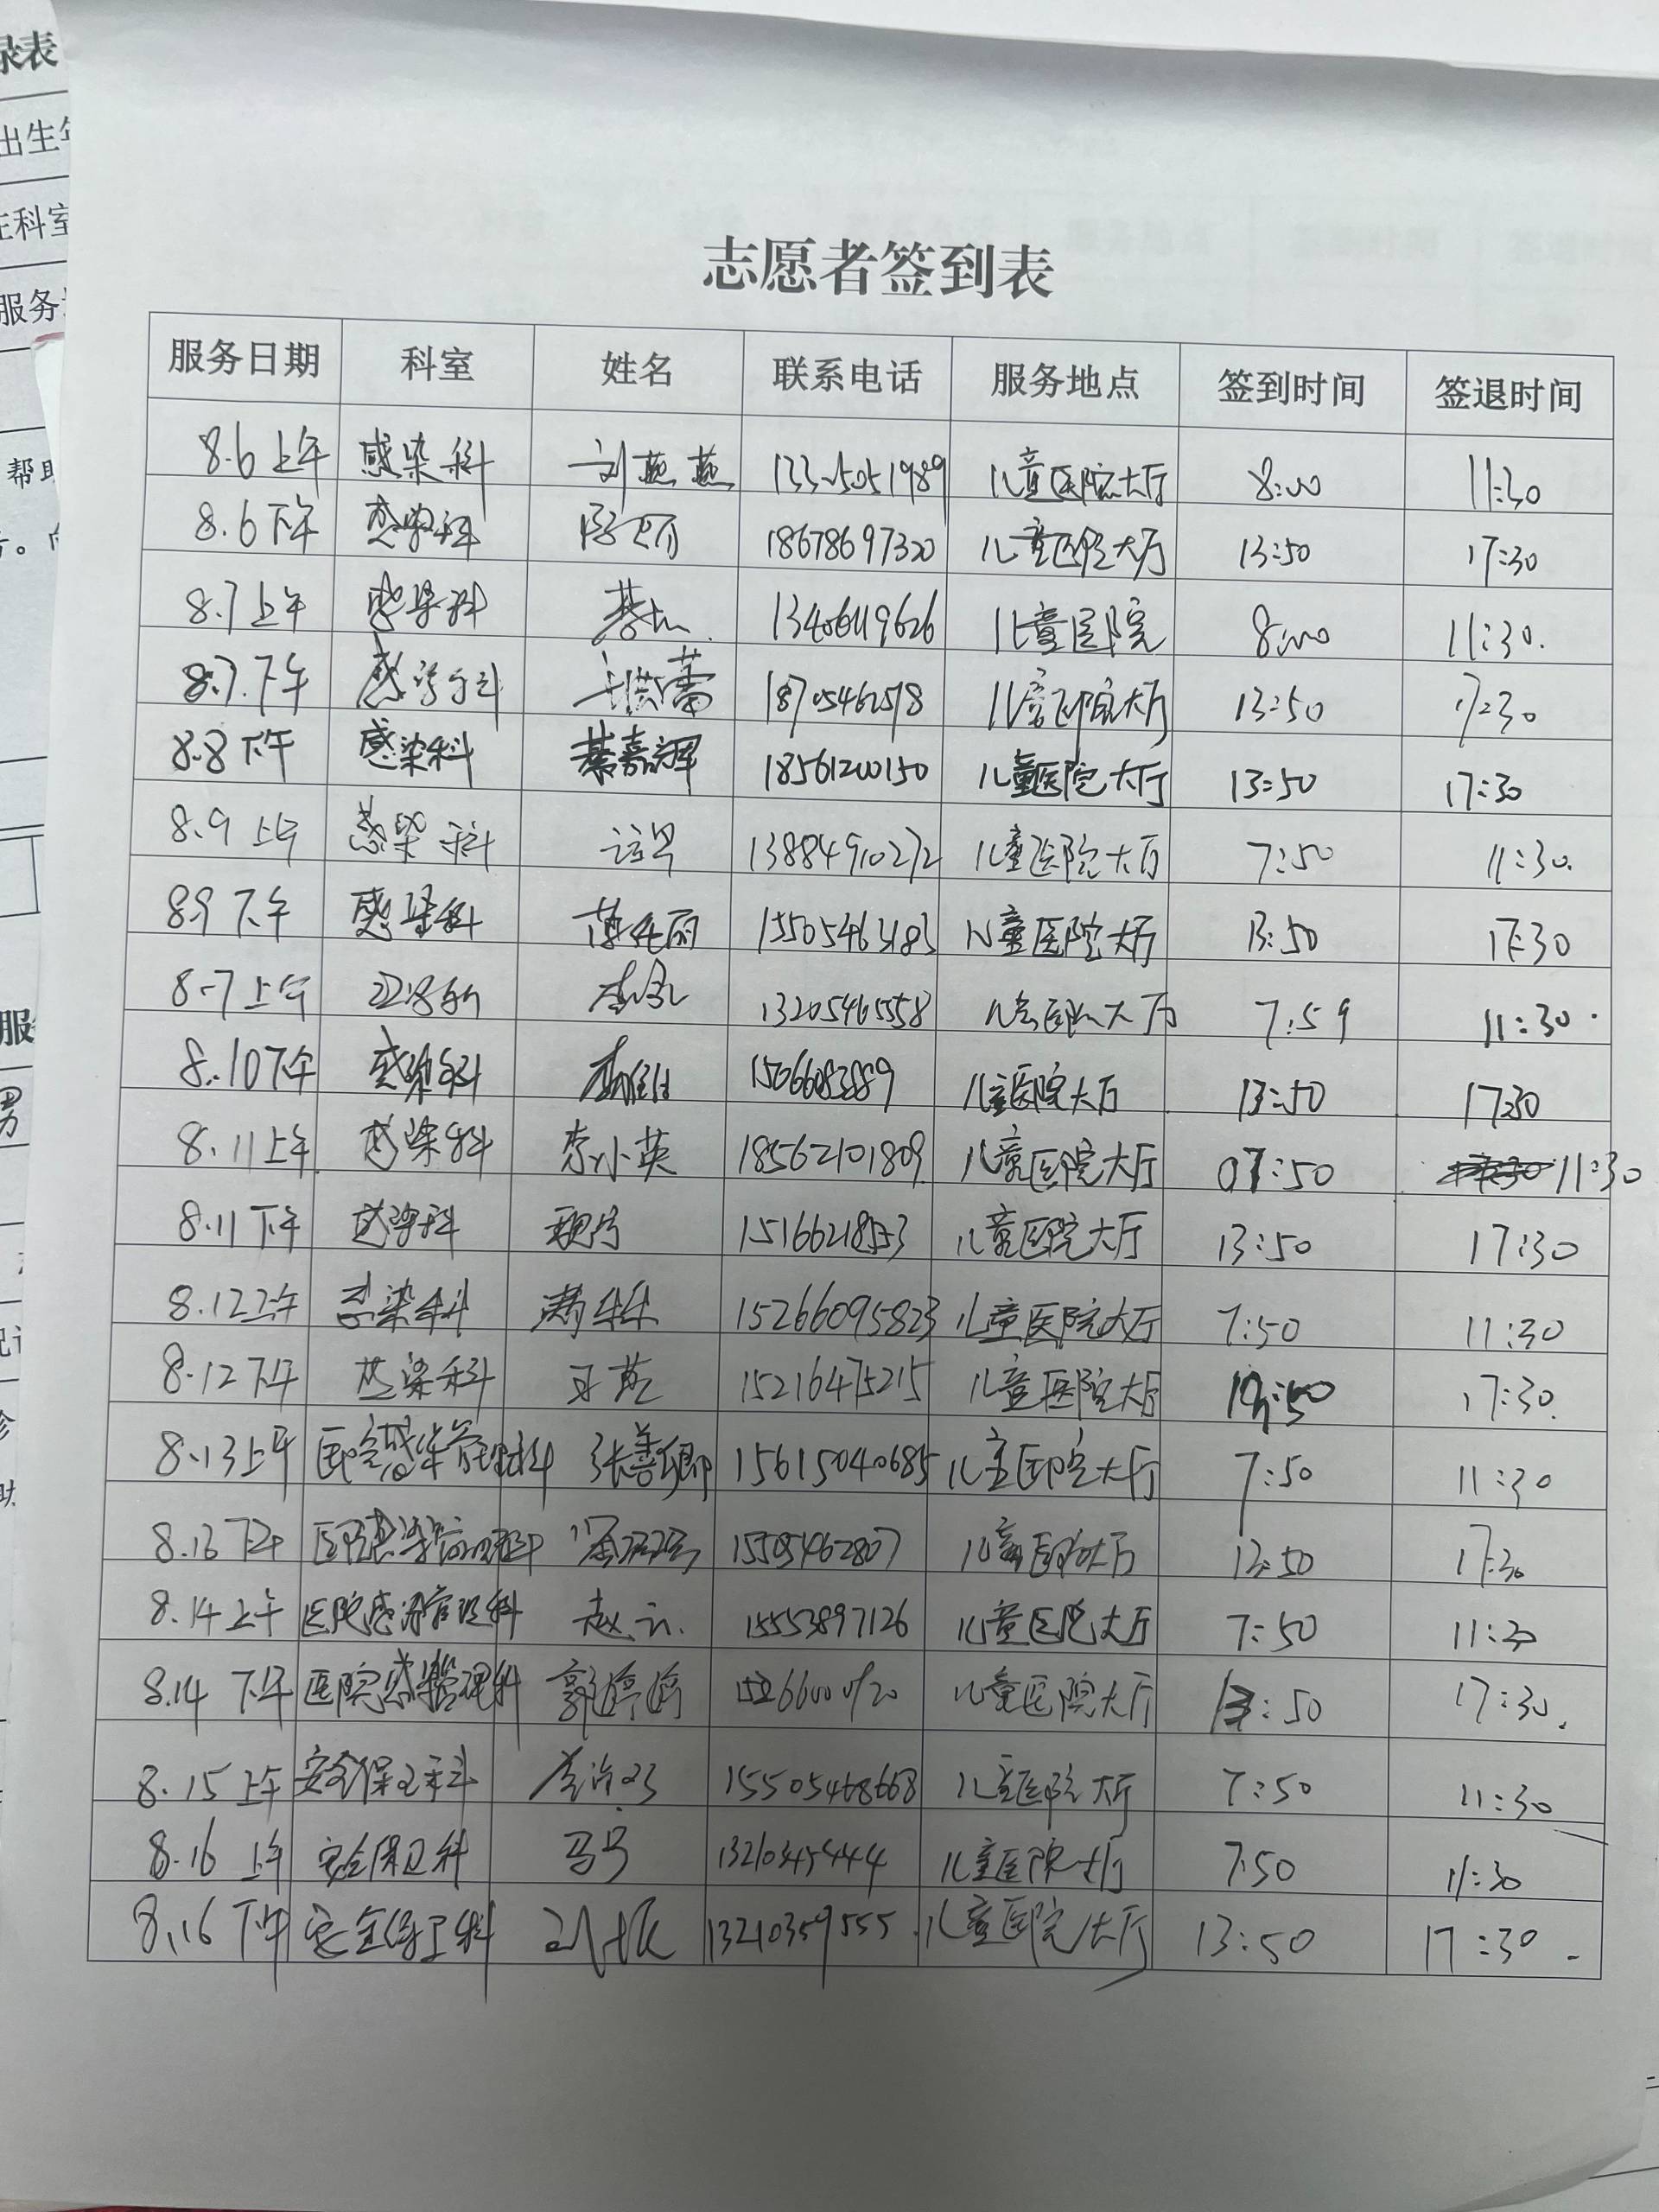 录表
出生年
在科室
服务
帮助
服务
男
志愿者签到表
服务日期 科室 姓名 联系电话 服务地点 签到时间 签退时间
8.6上午 感染科 刘燕燕 儿童医院大厅 8:00 11:30
8.6下午 感染科 18678697320 儿童医院大厅 13:50 17:30
8.7上午 感染科 儿童医院 8:00 11:30.
8.7.下午 感染科 儿童医院大厅 13:50 17:30
8.8下午 感染科 綦嘉晖 18561200150 儿童医院大厅 13:50 17:30
8.9上午 感染科 儿童医院大厅 7:50 11:30.
8.9下午 感染科 儿童医院大厅 13:50 17:30
8.7上午 13205465558 儿童医院大厅 7:59 11:30.
8.10下午 感染科 儿童医院大厅 13:50 17:30
8.11上午 感染科 李小英 18562101809 儿童医院大厅 07:50 11:30
8.11下午 感染科 儿童医院大厅 13:50 17:30
8.12上午 感染科 15266095823 儿童医院大厅 7:50 11:30
8.12下午 感染科 王燕 15216475215 儿童医院大厅 17:30.
8.13上午 医院感染管理科 张善卿 15615040685 儿童医院大厅 7:50 11:30
8.13下午 医院感染管理科 15505462807 儿童医院大厅 13:50 17:30
8.14上午 医院感染管理科 赵云 15553897126 儿童医院大厅 7:50 11:30
8.14下午 医院感染管理科 郭婷婷 儿童医院大厅 13:50 17:30.
8.15上午 安全保卫科 15505468668 儿童医院大厅 7:50 11:30
8.16上午 安全保卫科 马号 13210345444 儿童医院大厅 7:50 11:30
8.16下午 安全保卫科 13210359555 儿童医院大厅 13:50 17:30